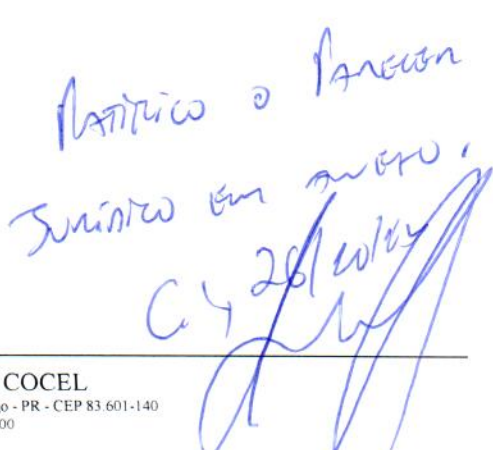 Ratifico o Parecer
Jurídico em anexo.
C. L, 26/10/
COCEL
o - PR - CEP 83.601-140
00